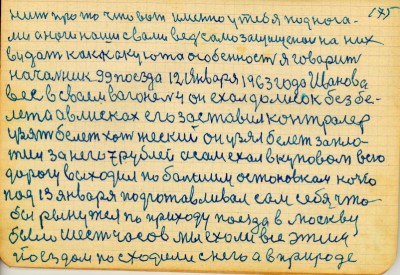 175
нит про то что вот името у тебя под нога-
ми а ноги наши с вами ведь самозащищеной на них
видат как какую та особеность я говарит
началник 99 поезда 12 января 1963 года Иванова
вес в сваем вагоне № 4 он ехал до мовск без бе-
лета а в писках его заставил контролер
узят белет хот жеский он узял белет запла-
тил за него 7 рублей сеам ехал в куповом всю
дорогу всходил по балшим остоновкам ночю
под 13 января подготавливал сам себя что-
бы рвынутся по приходу поезда в москву
было шест часов мы ехоли все этим
поездом посходили с него а в природе